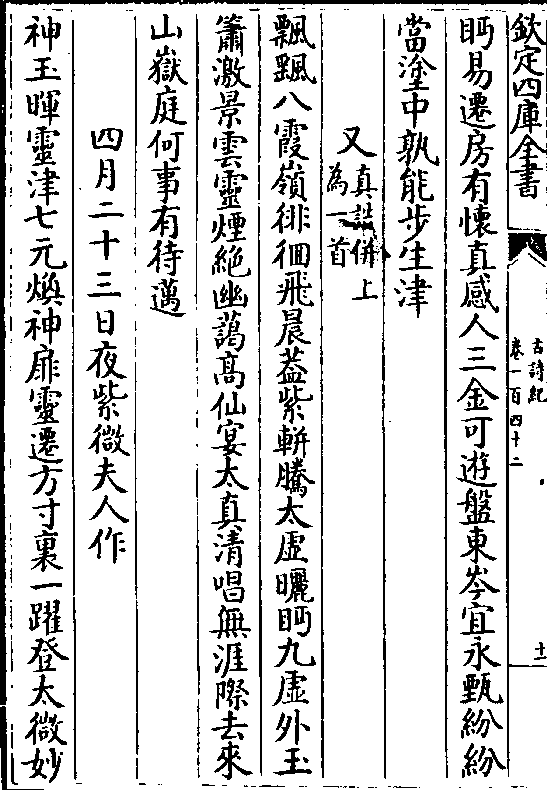 欽定四庫全書
古詩紀
卷一百四十二
十一
眄易遷房有懷真感人三金可遊盤東岑宜永甄紛紛
當塗中孰能步生津
又真誥併上
為一首
飄飄八霞嶺徘徊飛晨葢紫軿騰太虛曬眄九虛外玉
簫激景雲靈煙絶幽藹高仙宴太真清唱無涯際去來
山嶽庭何事有待邁
四月二十三日夜紫微夫人作
神玉暉靈津七元煥神扉靈遷方寸裏一躍登太微妙